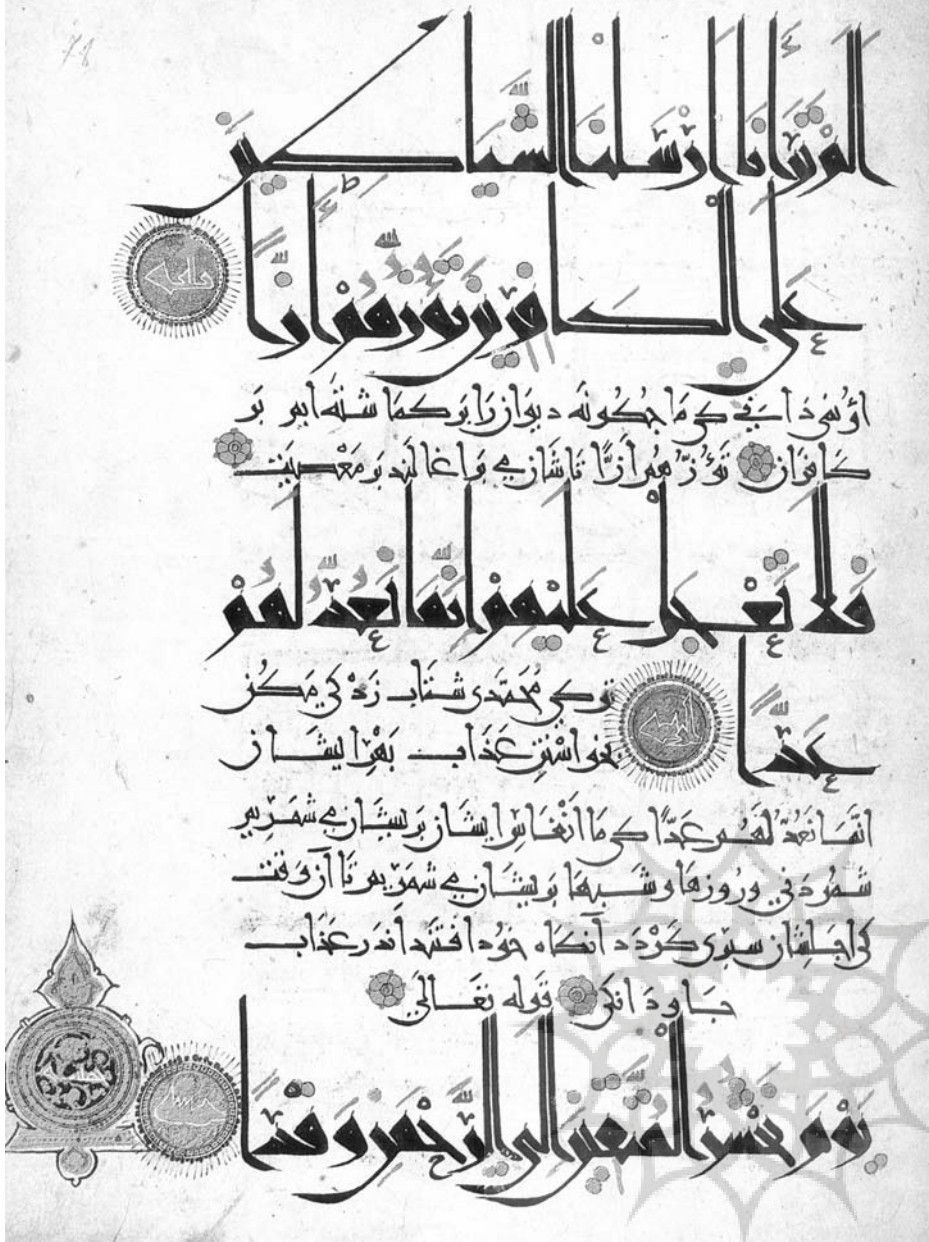 الم تر أنا أرسلنا الشياطين
على الكافرين تؤزهم أزا
کافران تؤزهم ازا تا شان می براغالند بر معصیت
فلا تعجل عليهم إنما نعد لهم
عدا
تو کی محمدی شتاب زده کی مکن
بخواستن عذاب بهر ایشان
انما نعد لهم عدا کی ما انفاس ایشان بر یشان می شمریم
شمردنی و روزها و شبها بر یشان می شمریم تا آن وقت
کی اجلشان سپری کردد آنکاه خود افتند اندر عذاب
جاودانکی قوله تعالی
يوم نحشر المتقين إلى الرحمن وفدا